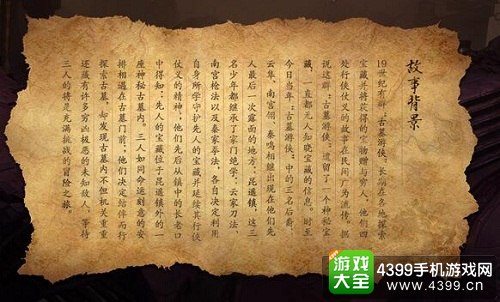 故事背景
19世纪有群“古墓游侠”长期在各地探索
宝藏并将获得的宝物赠与穷人。他们四
处行侠仗义的故事在民间广为流传。据
说这群“古墓游侠”遗留了一个神秘宝
藏，一直都无人知晓宝藏的信息。时至
今日当年“古墓游侠”中的三名后裔，
云隼、南宫翎、秦鸣相继出现在他们先
人最后一次露面的地方：昆道镇，这三
名少年都继承了家门绝学：云家刀法、
南宫枪法以及秦家拳法，各自决定利用
自身所学守护先人的宝藏并继续其行侠
仗义的精神；他们先后从镇中的长老口
中得知：先人的宝藏位于昆道镇外的一
座神秘古墓内。三人如同命运刻意的安
排相遇在古墓门前；他们决定结伴而行
探索古墓，却发现古墓内不但机关重重
还藏有许多穷凶极恶的未知敌人，等待
三人的将是充满挑战的冒险之旅。
游戏
大全
4399手机游戏网
www.4399.cn